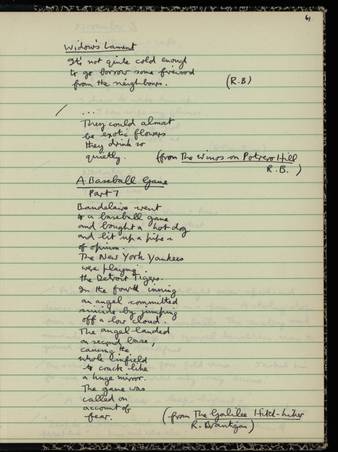 4
Widow's Lament
It's not quite cold enough
to go borrow some firewood
from the neighbours. (R.B)
...
They could almost
be exotic flowers
they drink so
quietly. (from The Winos on Potrero Hill
R.B.)
A Baseball Game
Part 7
Baudelaire went
to a baseball game
and bought a hot dog
and lit up a pipe
of opium.
The New York Yankees
were playing
the Detroit Tigers.
In the fourth inning
an angel committed
suicide by jumping
off a low cloud.
The angel landed
on second base,
causing the
whole infield
to crack like
a huge mirror.
The game was
called on
account of
fear. (from The Galilee Hitch-hiker
R. Brautigan)